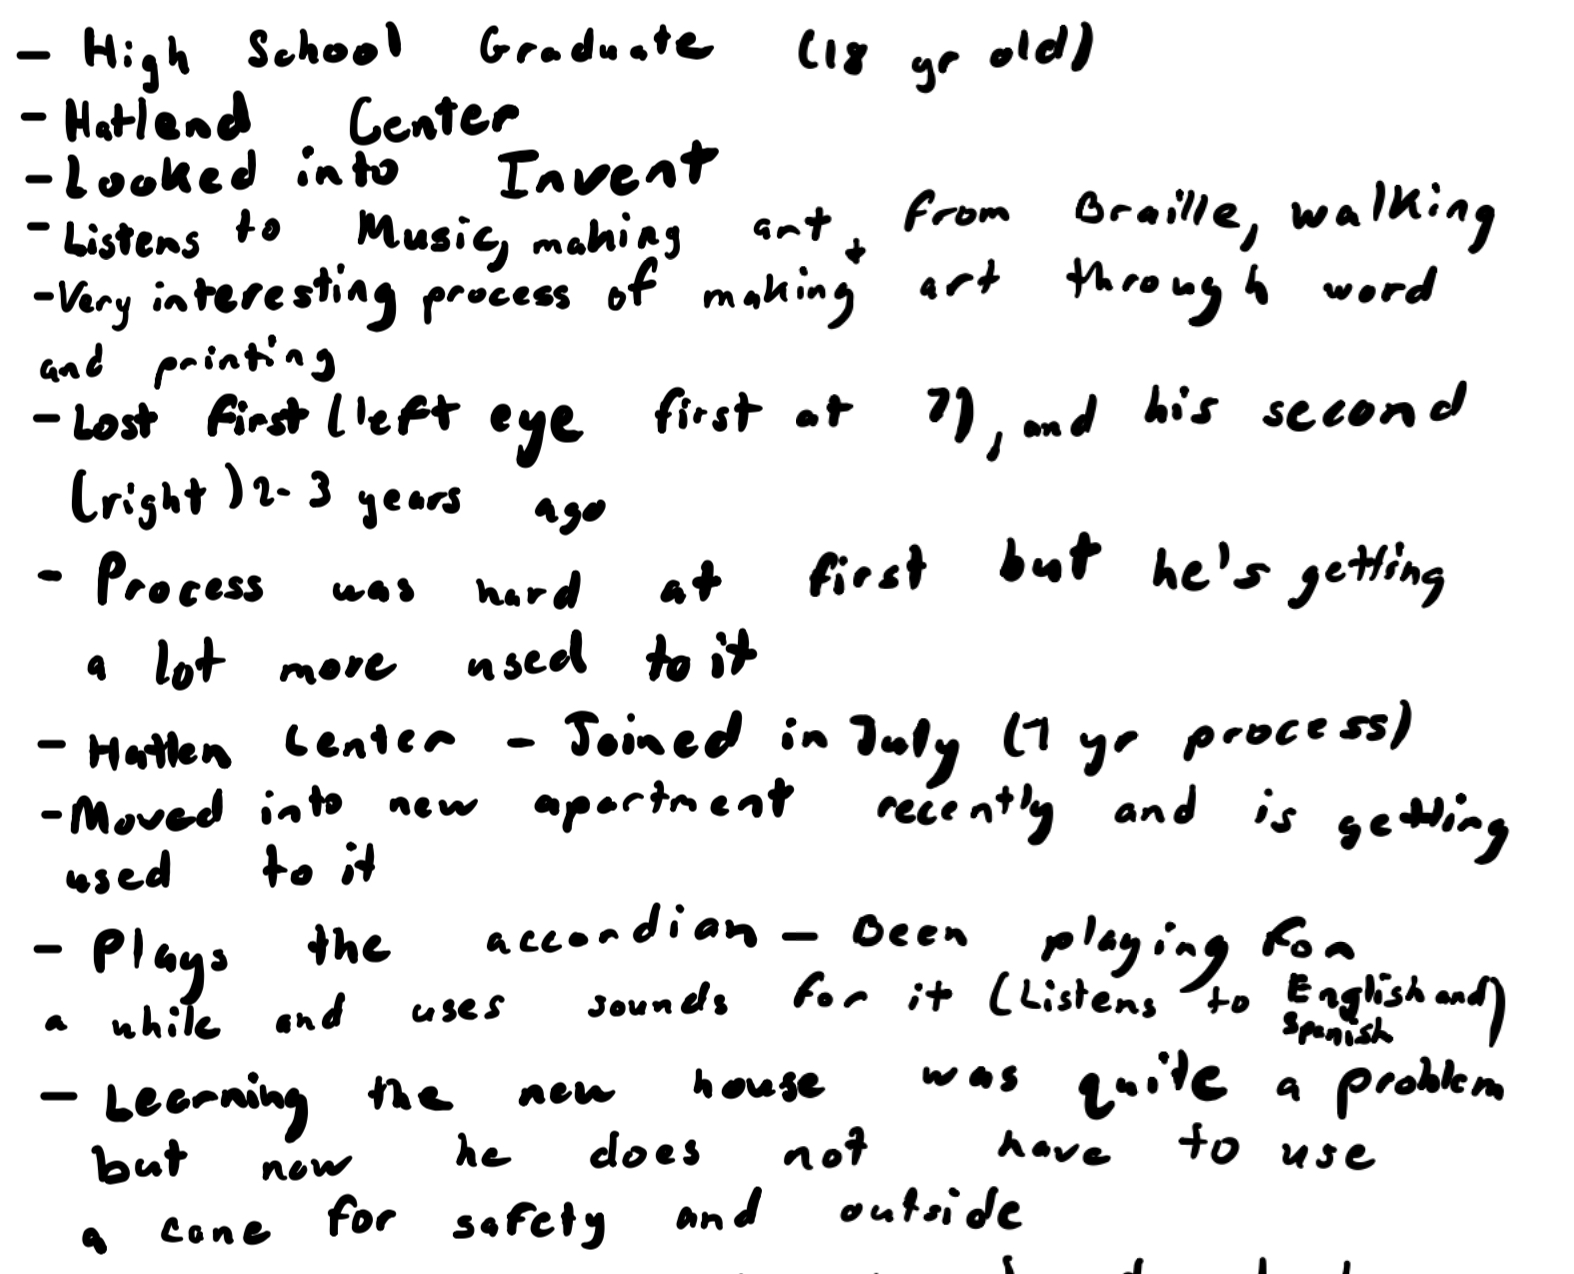 - High School Graduate (18 yr old)
- Hatlend Center
- Looked into Invent
- Listens to Music, making art, from Braille, walking
- Very interesting process of making art through word
and printing
- Lost first (left eye first at 7), and his second
(right) 2-3 years ago
- Process was hard at first but he's getting
a lot more used to it
- Hatlen Center - Joined in July (1 yr process)
- Moved into new apartment recently and is getting
used to it
- Plays the accordian - Been playing for
a while and uses sounds for it (Listens to English and)
Spanish
- Learning the new house was quite a problem
but now he does not have to use
a cane for safety and outside